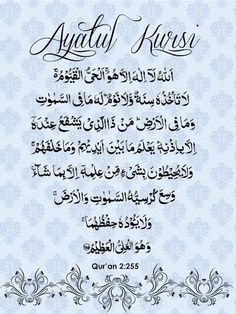 Ayatul Kursi
اللَّهُ لَا إِلَٰهَ إِلَّا هُوَ الْحَيُّ الْقَيُّومُ ۚ
لَا تَأْخُذُهُ سِنَةٌ وَلَا نَوْمٌ ۚ لَّهُ مَا فِي السَّمَاوَاتِ
وَمَا فِي الْأَرْضِ ۗ مَن ذَا الَّذِي يَشْفَعُ عِندَهُ
إِلَّا بِإِذْنِهِ ۚ يَعْلَمُ مَا بَيْنَ أَيْدِيهِمْ وَمَا خَلْفَهُمْ ۖ
وَلَا يُحِيطُونَ بِشَيْءٍ مِّنْ عِلْمِهِ إِلَّا بِمَا شَاءَ ۚ
وَسِعَ كُرْسِيُّهُ السَّمَاوَاتِ وَالْأَرْضَ ۖ
وَلَا يَئُودُهُ حِفْظُهُمَا ۚ
وَهُوَ الْعَلِيُّ الْعَظِيمُ
Qur'an 2:255